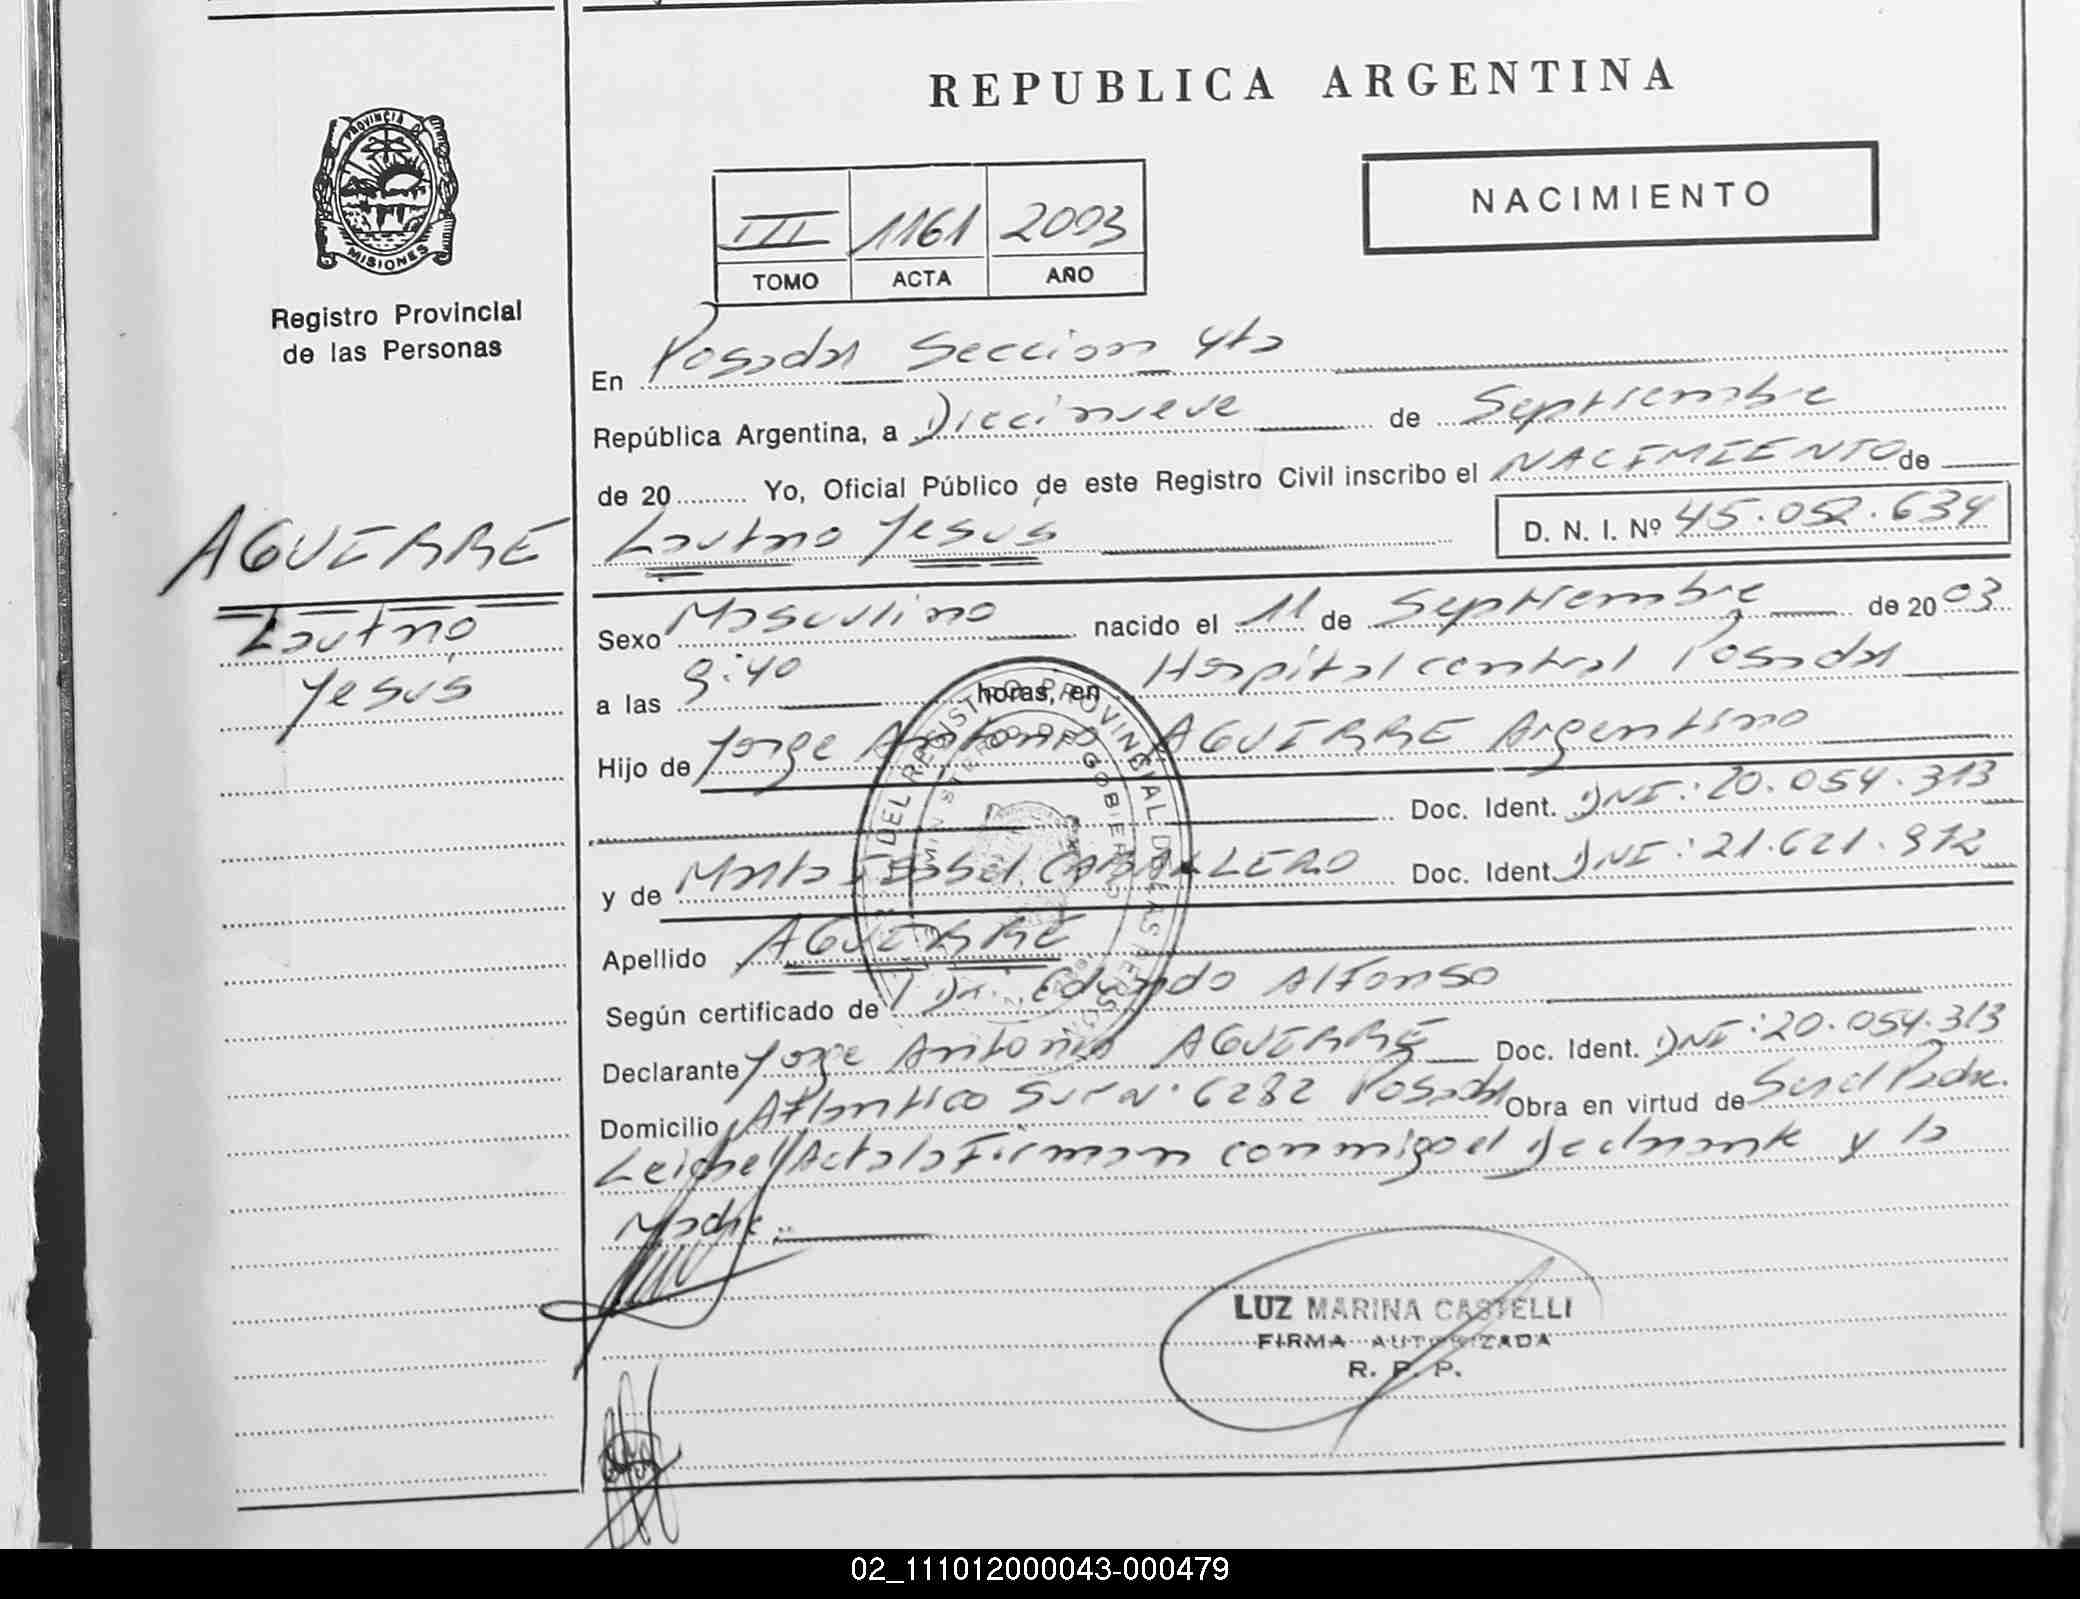 REPUBLICA ARGENTINA
PROVINCIA D
MISIONES
Registro Provincial
de las Personas
NACIMIENTO
III 1161 2003
TOMO ACTA AÑO
En Posadas Seccion 4ta
República Argentina, a Diecinueve de Septiembre
de 20 Yo, Oficial Público de este Registro Civil inscribo el NACIMIENTO de
Lautaro Jesús D. N. I. Nº 45.052.634
AGUIRRE
Lautaro
Jesús
Sexo Masculino nacido el 11 de Septiembre de 2003
a las 9:40 horas, en Hospital central Posadas
Hijo de Jorge Antonio AGUIRRE Argentino
Doc. Ident. DNI: 20.054.313
y de Marta Isabel CABALLERO Doc. Ident. DNI: 21.621.972
Apellido AGUIRRE
Según certificado de Dr. Eduardo Alfonso
Declarante Jorge Antonio AGUIRRE Doc. Ident. DNI: 20.054.313
Domicilio Atlantico Sur N° 6282 Posadas Obra en virtud de Ser el Padre.
Leida el Acta la Firman conmigo el declarante y la
Madre.
DEL REGISTRO PROVINCIAL DE LAS PERSONAS
MINISTERIO DE GOBIERNO
LUZ MARINA CASTELLI
FIRMA AUTORIZADA
R. P. P.
02_111012000043-000479